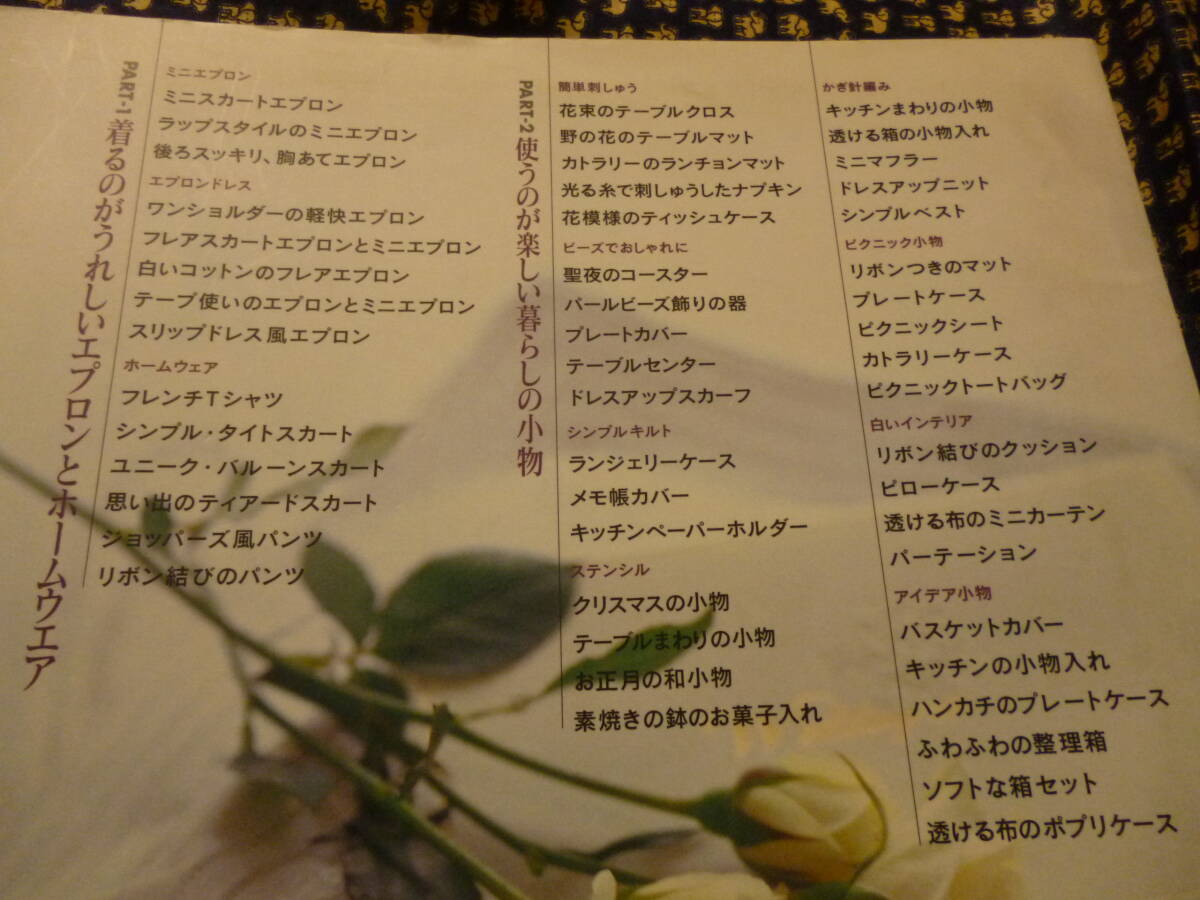 PART-1 着るのがうれしいエプロンとホームウエア
ミニエプロン
ミニスカートエプロン
ラップスタイルのミニエプロン
後ろスッキリ、胸あてエプロン
エプロンドレス
ワンショルダーの軽快エプロン
フレアスカートエプロンとミニエプロン
白いコットンのフレアエプロン
テープ使いのエプロンとミニエプロン
スリップドレス風エプロン
ホームウェア
フレンチTシャツ
シンプル・タイトスカート
ユニーク・バルーンスカート
思い出のティアードスカート
ジョッパーズ風パンツ
リボン結びのパンツ
PART-2 使うのが楽しい暮らしの小物
簡単刺しゅう
花束のテーブルクロス
野の花のテーブルマット
カトラリーのランチョンマット
光る糸で刺しゅうしたナプキン
花模様のティッシュケース
ビーズでおしゃれに
聖夜のコースター
パールビーズ飾りの器
プレートカバー
テーブルセンター
ドレスアップスカーフ
シンプルキルト
ランジェリーケース
メモ帳カバー
キッチンペーパーホルダー
ステンシル
クリスマスの小物
テーブルまわりの小物
お正月の和小物
素焼きの鉢のお菓子入れ
かぎ針編み
キッチンまわりの小物
透ける箱の小物入れ
ミニマフラー
ドレスアップニット
シンプルベスト
ピクニック小物
リボンつきのマット
プレートケース
ピクニックシート
カトラリーケース
ピクニックトートバッグ
白いインテリア
リボン結びのクッション
ピローケース
透ける布のミニカーテン
パーテーション
アイデア小物
バスケットカバー
キッチンの小物入れ
ハンカチのプレートケース
ふわふわの整理箱
ソフトな箱セット
透ける布のポプリケース